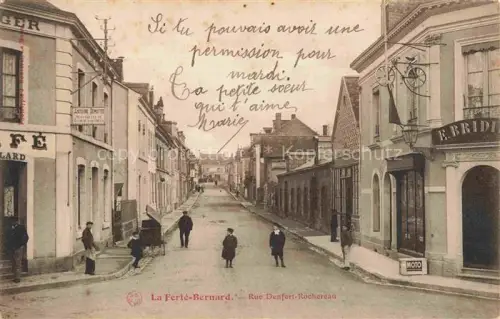 Si tu pouvais avoir une
permission pour
mardi.
Ta petite sœur
qui t'aime
Marie
CAFÉ
LARD
E. BRIDI
La Ferté-Bernard. Rue Denfert-Rochereau